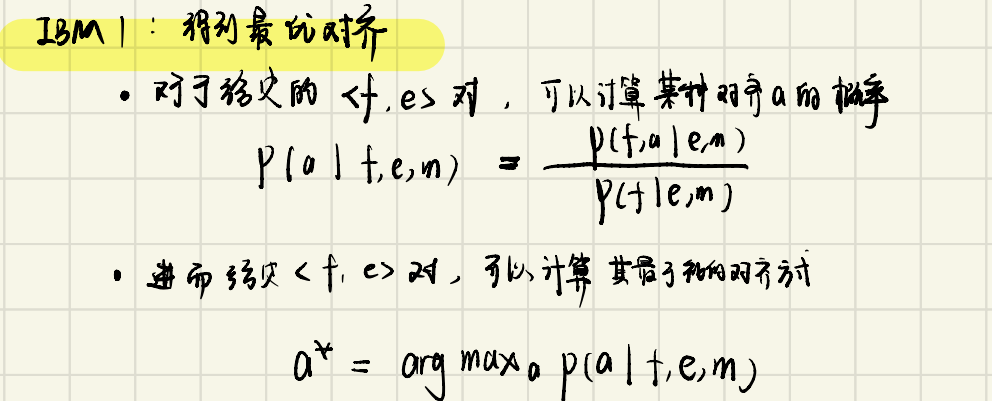 IBM 1：得到最优对齐
• 对于给定的 <f, e> 对，可以计算某种对齐 a 的概率
p(a | f, e, m) = p(f, a | e, m) / p(f | e, m)
• 进而给定 <f, e> 对，可以计算其最可能的对齐方式
a* = arg max_a p(a | f, e, m)